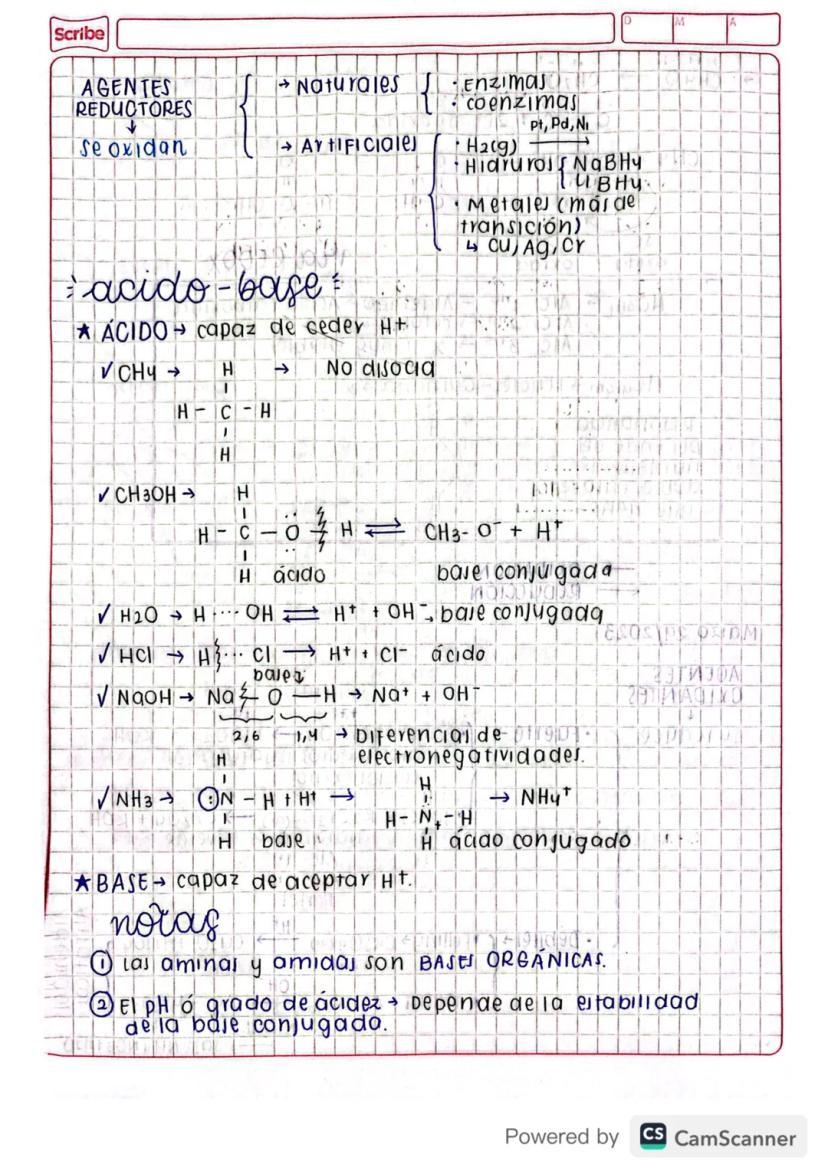 Scribe
D M A
AGENTES REDUCTORES
↓
se oxidan
→ Naturales { · Enzimas
· coenzimas
→ Artificiales { · H2(g) Pt, Pd, Ni →
· Hidruros { NaBH4
LiBH4
· Metales (más de
transición)
↳ Cu, Ag, Cr
acido-base
★ ÁCIDO → capaz de ceder H+
✓ CH4 → H → No disocia
H - C - H
H
✓ CH3OH → H
H - C - O H ⇌ CH3-O⁻ + H⁺
H ácido base conjugada
✓ H2O → H ···· OH ⇌ H⁺ + OH⁻ → base conjugada
✓ HCl → H ··· Cl → H⁺ + Cl⁻ ácido
bases
✓ NaOH → Na O — H → Na⁺ + OH⁻
2,6 1,4 → Diferencias de
electronegatividades.
H H
✓ NH3 → :N - H + H⁺ → H - N⁺ - H → NH4⁺
H base H ácido conjugado
★ BASE → capaz de aceptar H+.
notas
① Las aminas y amidas son BASES ORGÁNICAS.
② El pH ó grado de ácidez → Depende de la estabilidad
de la base conjugado.
Powered by CS CamScanner